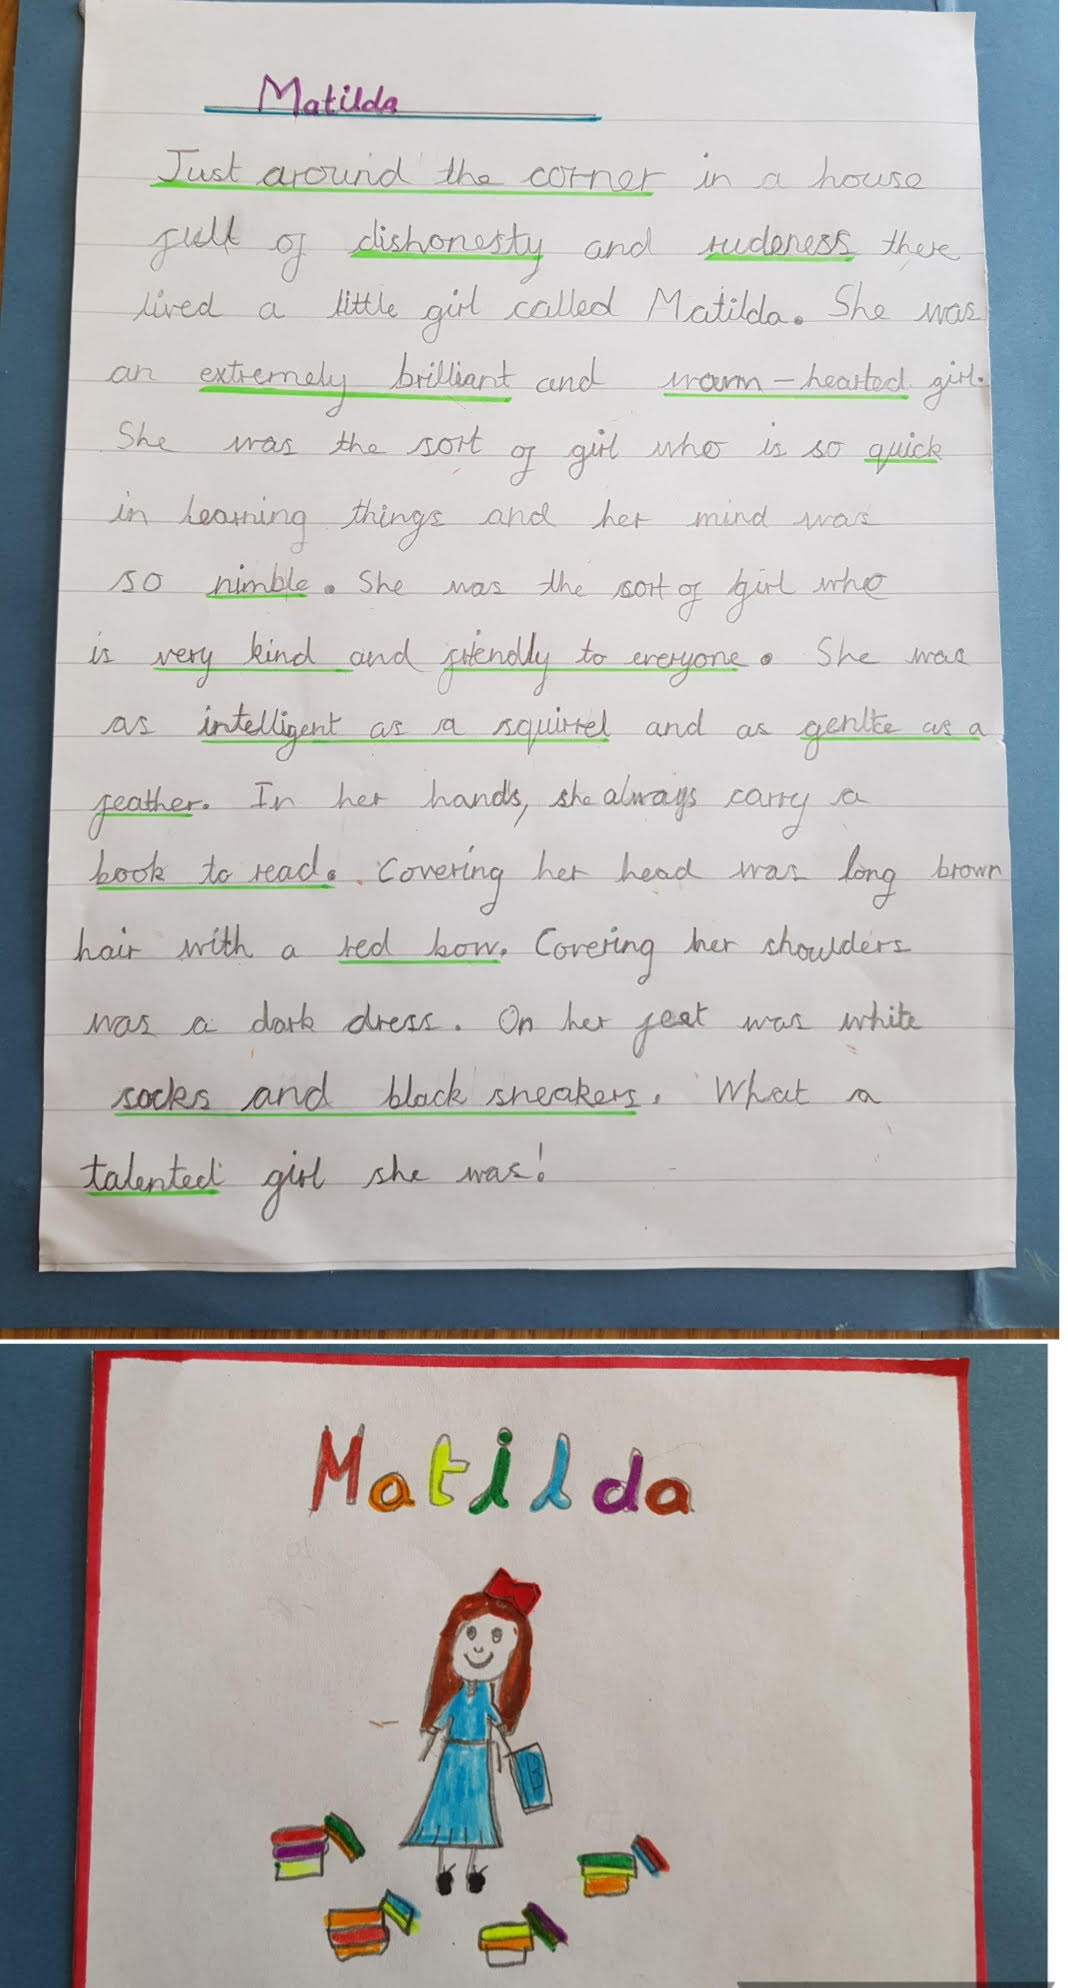 Matilda
Just around the corner in a house
full of dishonesty and rudeness there
lived a little girl called Matilda. She was
an extremely brilliant and warm-hearted girl.
She was the sort of girl who is so quick
in learning things and her mind was
so nimble. She was the sort of girl who
is very kind and friendly to everyone. She was
as intelligent as a squirrel and as genlte as a
feather. In her hands, she always carry a
book to read. Covering her head was long brown
hair with a red bow. Covering her shoulders
was a dark dress. On her feet was white
socks and black sneakers. What a
talented girl she was!
Matilda
B